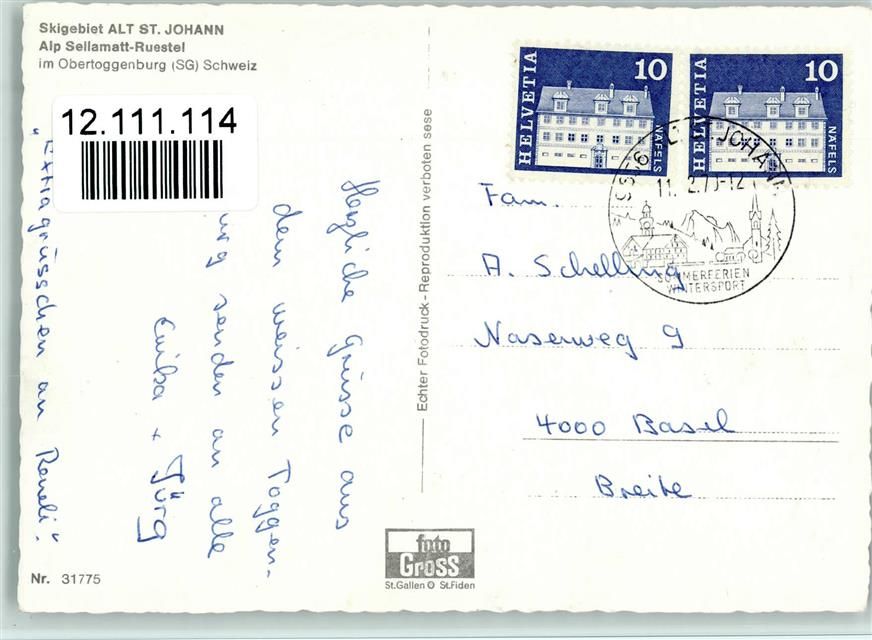 Skigebiet ALT ST. JOHANN
Alp Sellamatt-Ruestel
im Obertoggenburg (SG) Schweiz
12.111.114
Herzliche Grüsse aus
dem weissen Toggen-
urg senden an alle
Erika + Jürg
"Extragrüsschen an Reneli."
Nr. 31775
Echter Fotodruck - Reproduktion verboten sese
foto
GROSS
St.Gallen St.Fiden
HELVETIA 10
NÄFELS
HELVETIA 10
NÄFELS
ST. JOHANN
11. 2.7 -12
SOMMERFERIEN
WINTERSPORT
Fam.
A. Schelling
Naserweg 9
4000 Basel
Breite